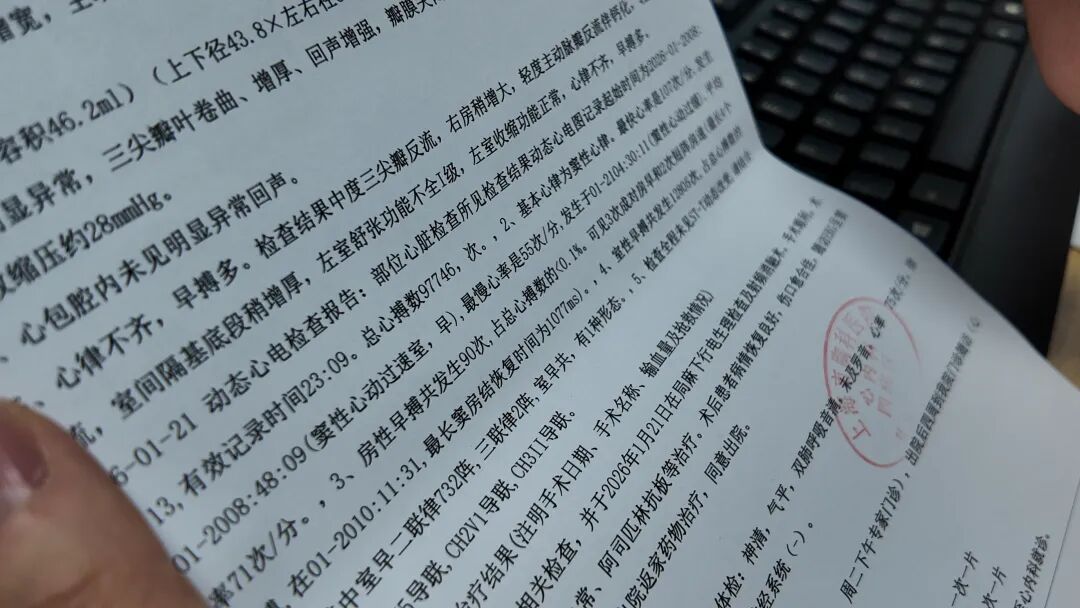 增宽，主
容积46.2ml）（上下径43.8×左右径
明显异常，三尖瓣叶卷曲、增厚、回声增强，瓣膜关
收缩压约28mmHg。
、心包腔内未见明显异常回声。
心律不齐，早搏多。检查结果中度三尖瓣反流，右房稍增大，轻度主动脉瓣反流伴钙化，
流，室间隔基底段稍增厚，左室舒张功能不全1级，左室收缩功能正常，心律不齐，早搏多。
6-01-21 动态心电检查报告：部位心脏检查所见检查结果动态心电图记录起始时间为2026-01-2008:
13，有效记录时间23:09。总心搏数97746，次。，2、基本心律为窦性心律。最快心率是107次/分，发生
01-2008:48:09(窦性心动过速室，早)，最慢心率是55次/分，发生于01-2104:30:11(窦性心动过缓)，平均
率71次/分。，3、房性早搏共发生90次，占总心搏数的<0.1%。可见3次成对房早和2次短阵房速(最长4个
，在01-2010:11:31，最长窦房结恢复时间为1077ms)。，4、室性早搏共发生13805次，占总心搏数的
中室早二联律732阵，三联律2阵，室早共，有1种形态。，5、检查全程未见ST-T动态改变，请结合
5导联，CH2V1导联，CH3II导联。
治疗结果(注明手术日期、手术名称、输血量及抢救情况)
相关检查，并于2026年1月21日在局麻下行电生理检查及射频消融术，手术顺利，术
常、阿司匹林抗板等治疗。术后患者病情恢复良好，伤口愈合佳，
出院返家药物治疗，同意出院。
体检：神清，气平，双肺呼吸音清，未及罗音，心率 75次/分，律
经系统（-）。
周二下午专家门诊），出院后四周前到我院门诊随访（心
一次一片
一次一片
心内科就诊。